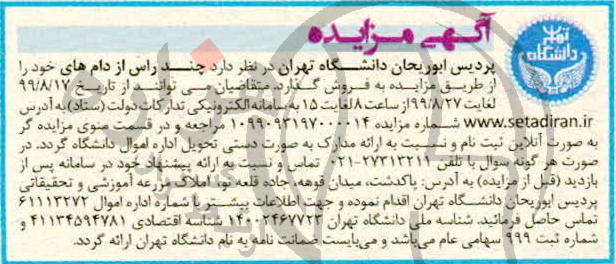 آگهی مزایده
پردیس ابوریحان دانشگاه تهران در نظر دارد چند راس از دام های خود را
از طریق مزایده به فروش گذارد. متقاضیان می توانند از تاریخ ۹۹/۸/۱۷
لغایت ۹۹/۸/۲۷ از ساعت ۸ لغایت ۱۵ به سامانه الکترونیکی تدارکات دولت (ستاد) به آدرس
www.setadiran.ir شماره مزایده ۱۰۹۹۰۹۳۱۹۷۰۰۰۰۱۴ مراجعه و در قسمت منوی مزایده گر
به صورت آنلاین ثبت نام و نسبت به ارائه مدارک به صورت دستی تحویل اداره اموال دانشگاه گردد. در
صورت هر گونه سوال با تلفن ۲۷۳۱۳۲۱۱-۰۲۱ تماس و نسبت به ارائه پیشنهاد خود در سامانه پس از
بازدید (قبل از مزایده) به آدرس: پاکدشت، میدان قوهه، جاده قلعه نو، املاک مزرعه آموزشی و تحقیقاتی
پردیس ابوریحان دانشگاه تهران اقدام نموده و جهت اطلاعات بیشتر با شماره اداره اموال ۶۱۱۱۳۲۷۲
تماس حاصل فرمائید. شناسه ملی دانشگاه تهران ۱۴۰۰۲۴۶۷۷۲۳ شناسه اقتصادی ۴۱۱۳۴۵۹۴۷۸۱ و
شماره ثبت ۹۹۹ سهامی عام می‌باشد و می‌بایست ضمانت نامه به نام دانشگاه تهران ارائه گردد.